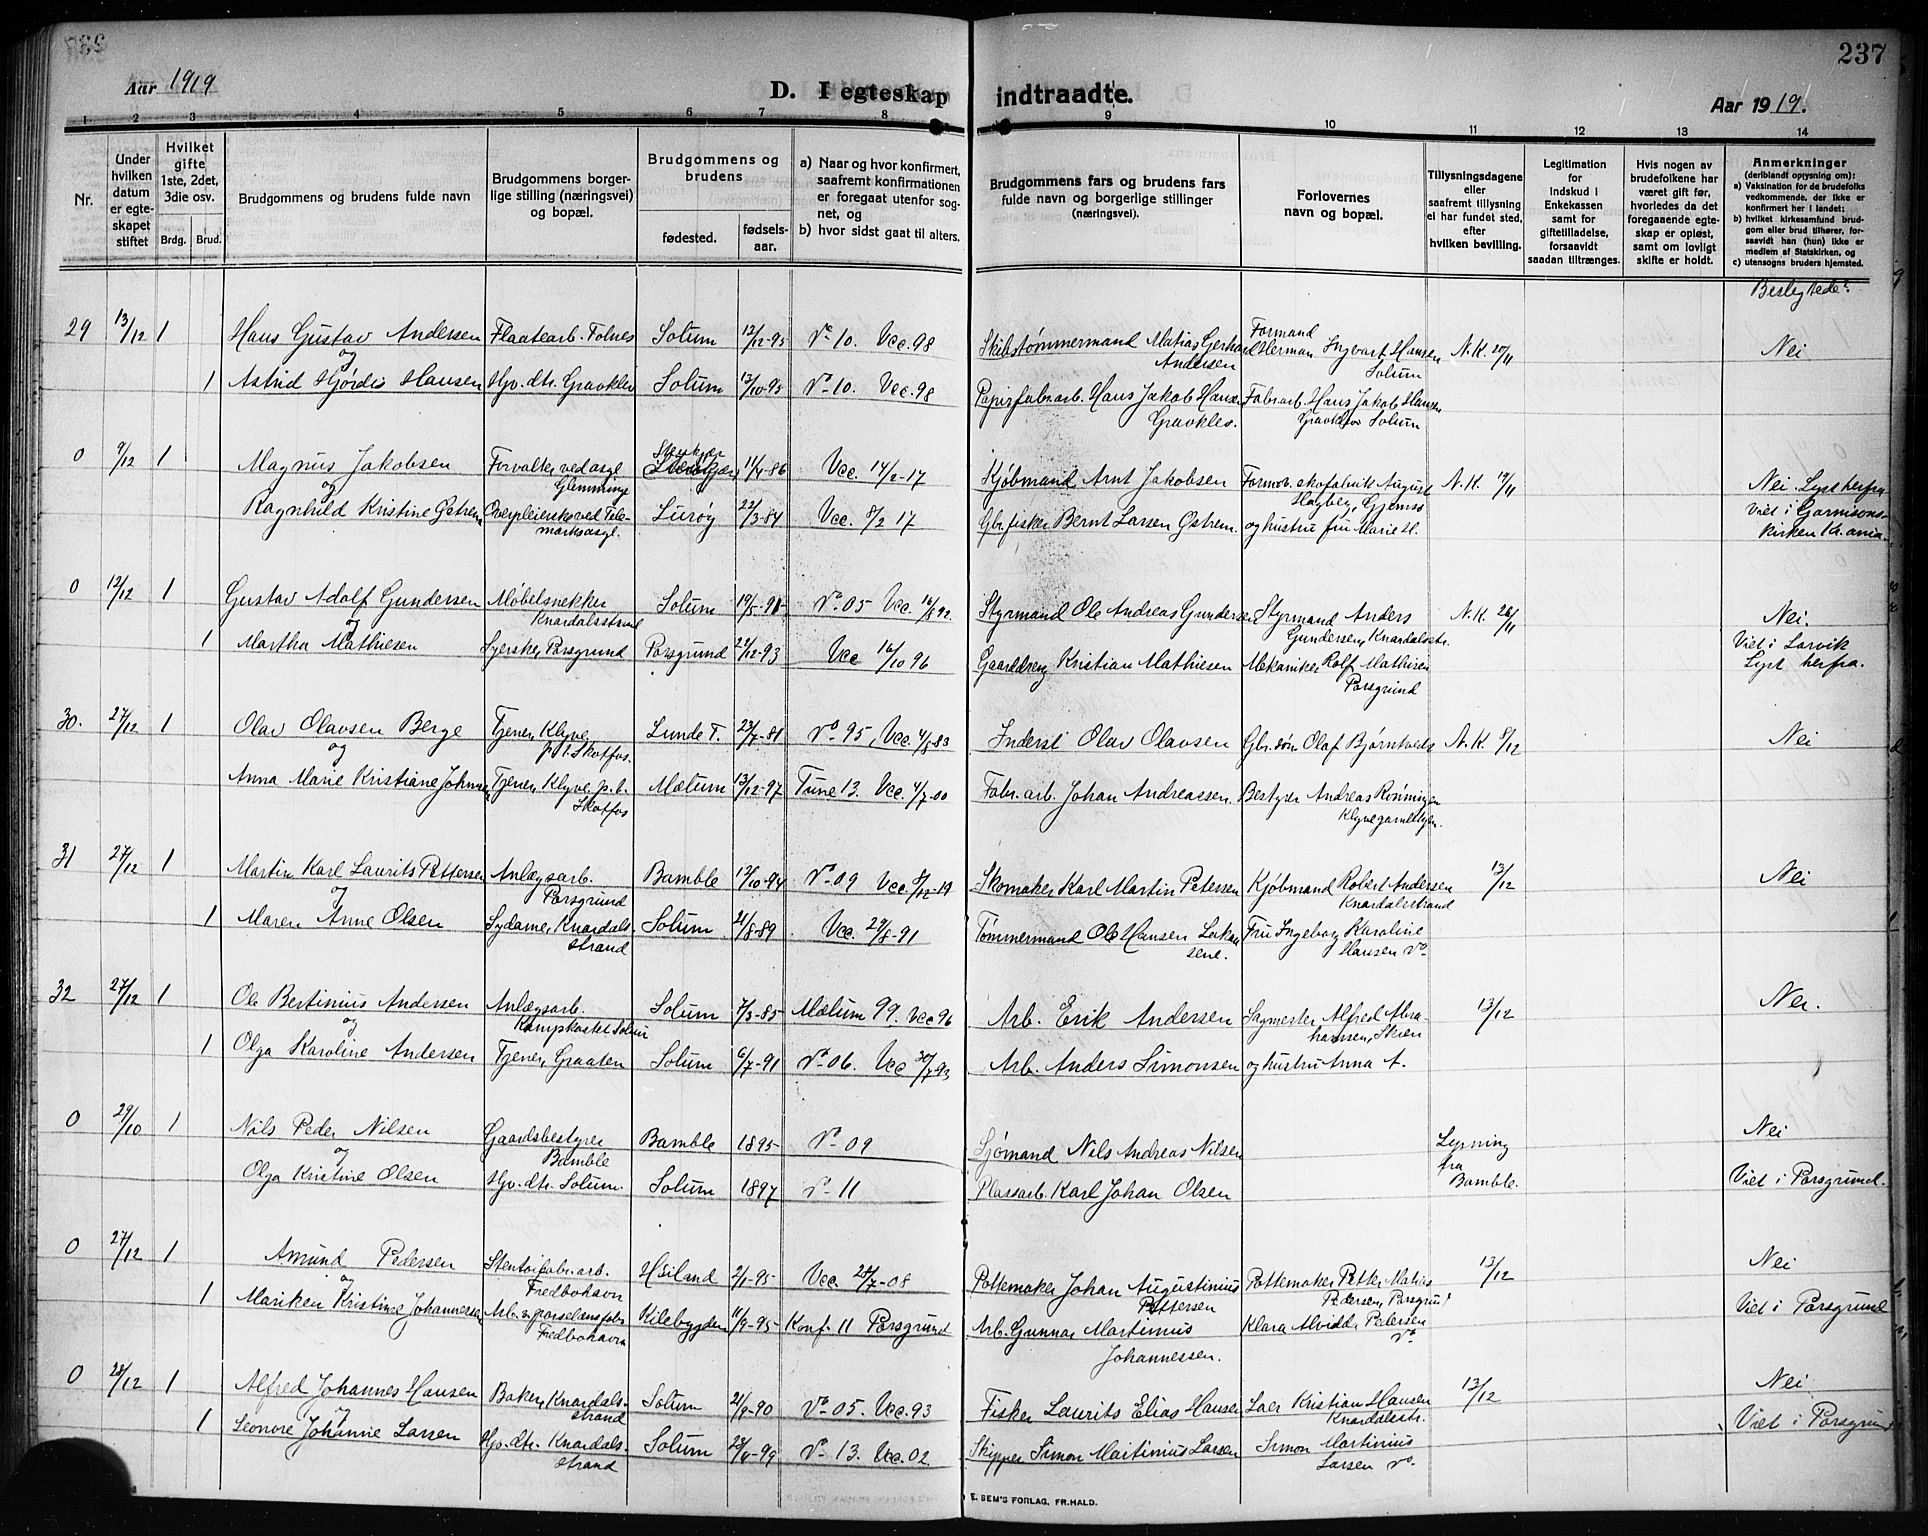 237
Aar 1919
D. I egteskap indtraadte.
Aar 1919.
1 2 3 4 5 6 7 8 9 10 11 12 13 14
Nr.
Under hvilken datum er egteskapet stiftet
Hvilket gifte, 1ste, 2det, 3die osv.
Brdg. Brud.
Brudgommens og brudens fulde navn
Brudgommens borgerlige stilling (næringsvei) og bopæl.
Brudgommens og brudens
fødested.
fødselsaar.
a) Naar og hvor konfirmert, saafremt konfirmationen er foregaat utenfor sognet, og
b) hvor sidst gaat til alters.
Brudgommens fars og brudens fars fulde navn og borgerlige stillinger (næringsvei).
Forlovernes navn og bopæl.
Tillysningsdagene eller saafremt tillysning ei har fundet sted, efter hvilken bevilling.
Legitimation for indskud i Enkekassen samt for giftetilladelse, forsaavidt saadan tiltrænges.
Hvis nogen av brudefolkene har været gift før, hvorledes da det foregaaende egteskap er opløst, samt om lovligt skifte er holdt.
Anmerkninger (deriblandt opysning om):
a) Vaksination for de brudefolks vedkommende, der ikke er konfirmert her i landet;
b) hvilket kirkesamfund brudgom eller brud tilhører, forsaavidt han (hun) ikke er medlem af Statskirken, og
c) utensogns bruders hjemsted.
Beslegtede?
29 13/12 1 Hans Gustav Andersen Flaatearb. Tolnes Solum 12/12-95 do 10. Vcc. 98 Skibstømmermand Matias Gerhard Andersen Formand Herman Ingvart Hansen Solum N.K. 20/11 Nei
og
1 Astrid Hjørdis Hansen Hv. dtr. Gravklev Solum 13/10-95 do 10. Vcc. 98 Papirfabr.arb. Hans Jakob Hansen Gravklev. Fabr.arb. Hans Jakob Hansen Gravklev Solum
0 9/12 1 Magnus Jakobsen Forvalter ved asyl Glemminge Stenkjær 11/4-86 Vcc. 14/2-17 Kjøbmand Arnt Jakobsen Formand skofabrik August Hagberg, Gjemsø N.K. 19/11 Nei. Lyst herfra
og
Ragnhild Kristine Østrem Overpleierske ved Telemarksasyl. Lurøy 22/3-84 Vcc. 8/2 17 Gbr. fisker Bernt Larsen Østrem. og hustru fru Marie H. Viet i Garnisonskirken Kr.ania.
0 12/12 1 Gustav Adolf Gundersen Møbelsnekker Knardalsstrand Solum 19/5-9 do 05 Vcc. 16/8 92. Styrmand Ole Andreas Gundersen Styrmand Anders Gundersen, Knardalsstr. N.K. 26/11 Nei.
og
1 Martha Mathiesen Syerske, Porsgrund Porsgrund 22/12-93 Vcc 16/10 96 Gaardsdreng Kristian Mathiesen Mekaniker Rolf Mathisen Porsgrund Viet i Larvik Lyst herfra.
30. 27/12 1 Olav Olavsen Berge Tjener, Klyve p.b. Skotfos. Lunde T. 23/7-81 do 95, Vcc. 4/8 83 Inderst Olav Olavsen Gbr.søn Olaf Bjørntvedt N.K. 8/12 Nei
og
Anna Marie Kristiane Johnsen Tjener, Klyve p.b. Skotfos Mælum 13/12-97 Tune 13. Vcc. 4/7-00 Fabr. arb. Johan Andreassen. Bestyrer Andreas Rønningen Klyvegamlehjem.
31 27/12 1 Martin Karl Laurits Pettersen Anlægsarb. Porsgrund Bamble 12/10-94 do 09 Vcc. 8/12-19 Skomaker Karl Martin Petersen Kjøbmand Robert Andersen Knardalsstrand 13/12 Nei
og
1 Maren Anne Olsen Sydame, Knardalsstrand Solum 21/8-89 Vcc. 29/8-91 Tømmermand Ole Hansen Loknesene. Fru Ingeborg Karoline Hansen do
32 27/12 1 Ole Bertinius Andersen Anlægsarb. Kampkastet Solum Solum 7/3-85 Mælum 99. Vcc 96 Arb. Erik Andersen Sagmester Alfred Abrahamsen, Skien 13/12 Nei.
og
1 Olga Karoline Andersen Tjener, Graaten Solum 6/7-91 do 06. Vcc 30/7-93 Arb. Anders Simonsen og hustru Anna A.
0 29/10 1 Nils Peder Nilsen Gaardsbestyrer Bamble Bamble 1895 do 09 Sjømand Nils Andreas Nilsen Lysning fra Bamble. Nei
og
Olga Kristine Olsen Hv. dtr. Solum. Solum 1897 do 11 Pladsarb. Karl Johan Olsen Viet i Porsgrund.
0 27/12 1 Amund Pedersen Stentøifabr.arb. Fredbohavn Høiland 2/1-95 Vcc. 28/7-08 Pottemaker Johan Augustinius Pettersen Pottemaker Petter Matias Pedersen, Porsgrund 13/12 Nei
og
1 Mariken Kristine Johannessen Arb. v. porselænsfabr. Fredbohavn Kilebygden 11/9-95 Konf. 11 Porsgrund Arb. Gunnar Martinius Johannessen. Klara Alvidde Pedersen do Viet i Porsgrund
0 28/12 1 Alfred Johannes Hansen Baker, Knardalsstrand Solum 21/9-90 do 05. Vcc. 93 Fisker Laurits Elias Hansen Loer Kristian Hansen Knardalsstr. 13/12 Nei
og
1 Leonore Johanne Larsen Hv. dtr. Knardalsstrand Solum 28/9-99 do 13. Vcc. 02. Skipper Simon Martinius Larsen Simon Martinius Larsen do Viet i Porsgrund
E. SEM'S FORLAG, FR.HALD.